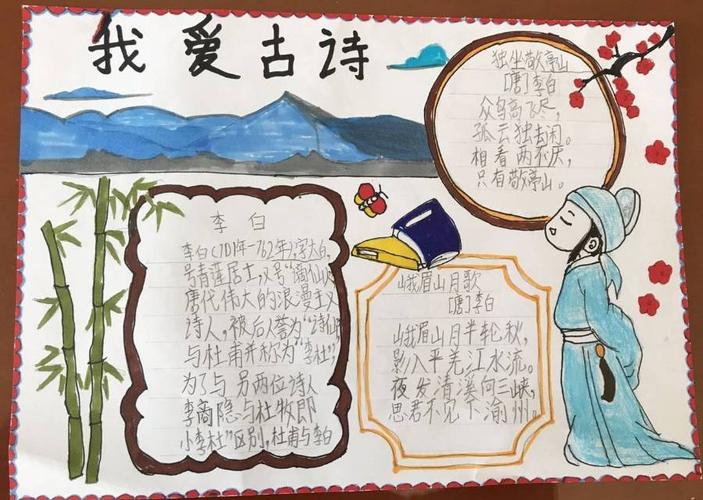 我爱古诗
独坐敬亭山
[唐]李白
众鸟高飞尽，
孤云独去闲。
相看两不厌，
只有敬亭山。
李白
李白(701年-762年),字太白,
号青莲居士,又号"谪仙人
唐代伟大的浪漫主义
诗人,被后人誉为"诗仙"
与杜甫并称为"李杜"
为了与另两位诗人
李商隐与杜牧即
小李杜"区别,杜甫与李白
峨眉山月歌
[唐]李白
峨眉山月半轮秋,
影入平羌江水流。
夜发清溪向三峡,
思君不见下渝州。